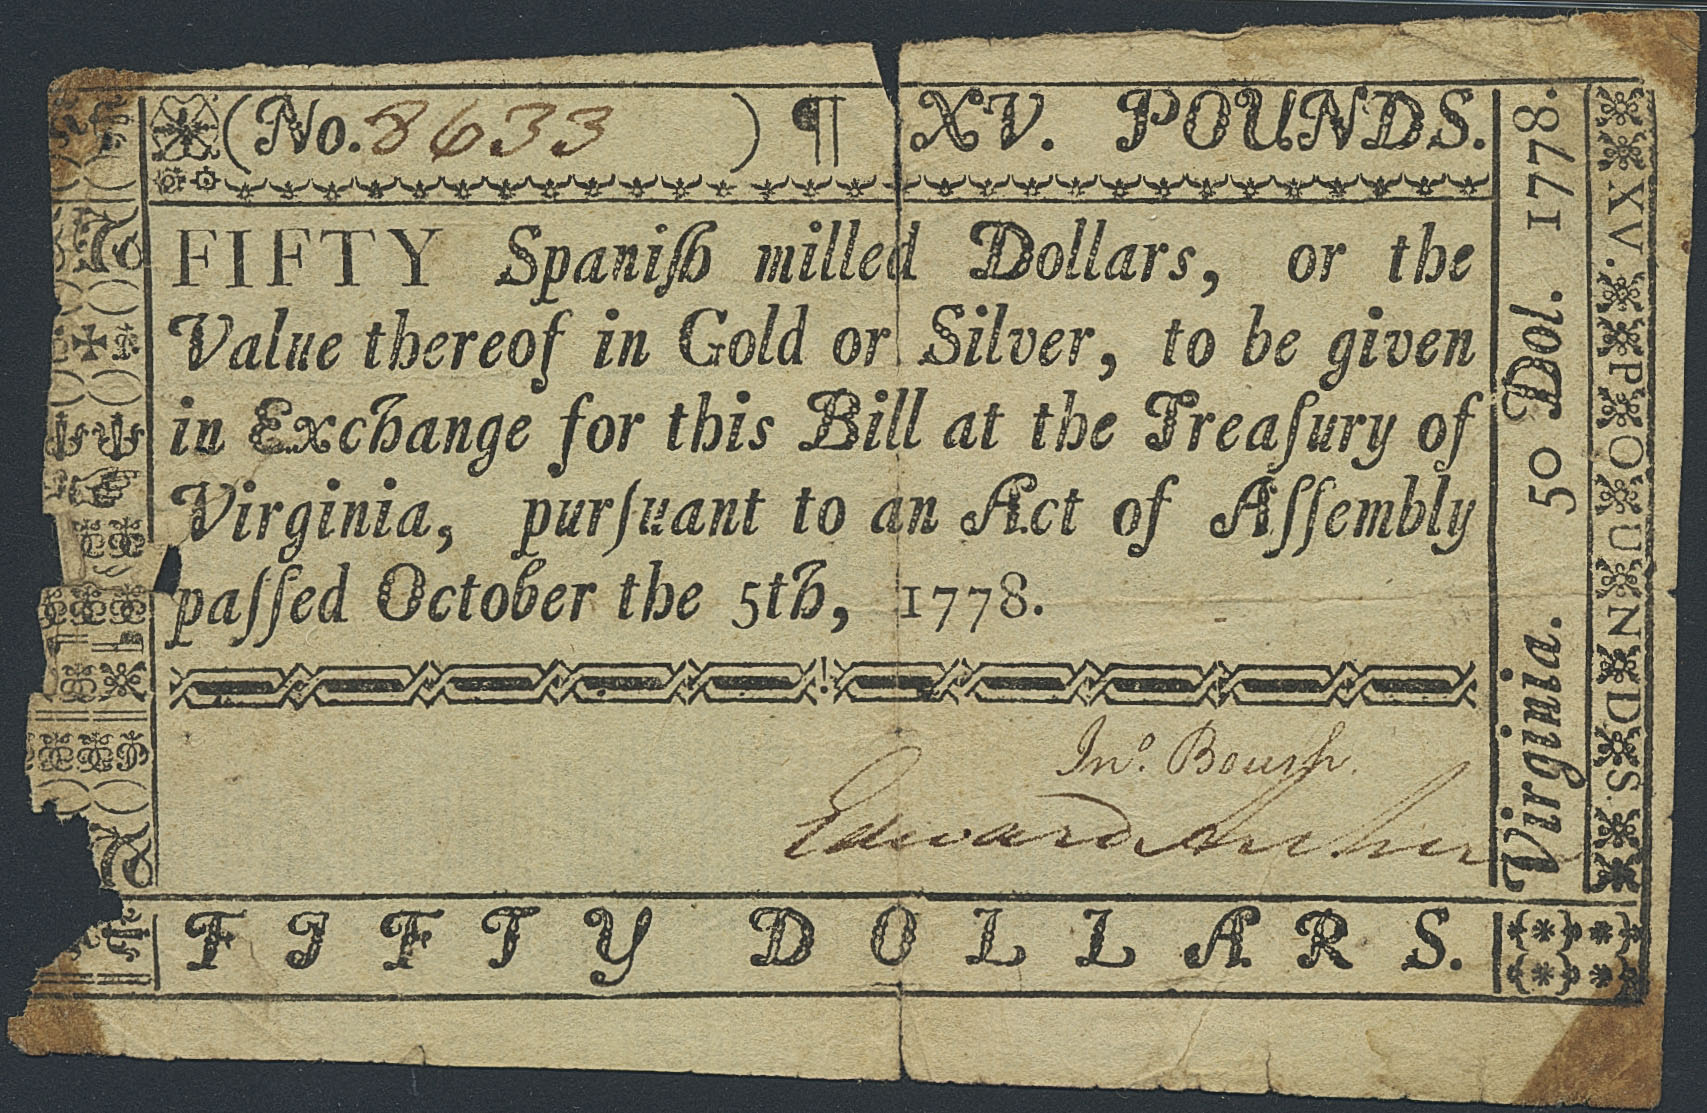 (No. 8633 ) ¶ XV. POUNDS.
FIFTY Spaniſh milled Dollars, or the
Value thereof in Gold or Silver, to be given
in Exchange for this Bill at the Treaſury of
Virginia, purſuant to an Act of Aſſembly
paſſed October the 5th, 1778.
Jnº. Boush.
Edward Archer
FIFTY DOLLARS.
Virginia. 50 Dol. 1778.
XV. POUNDS.